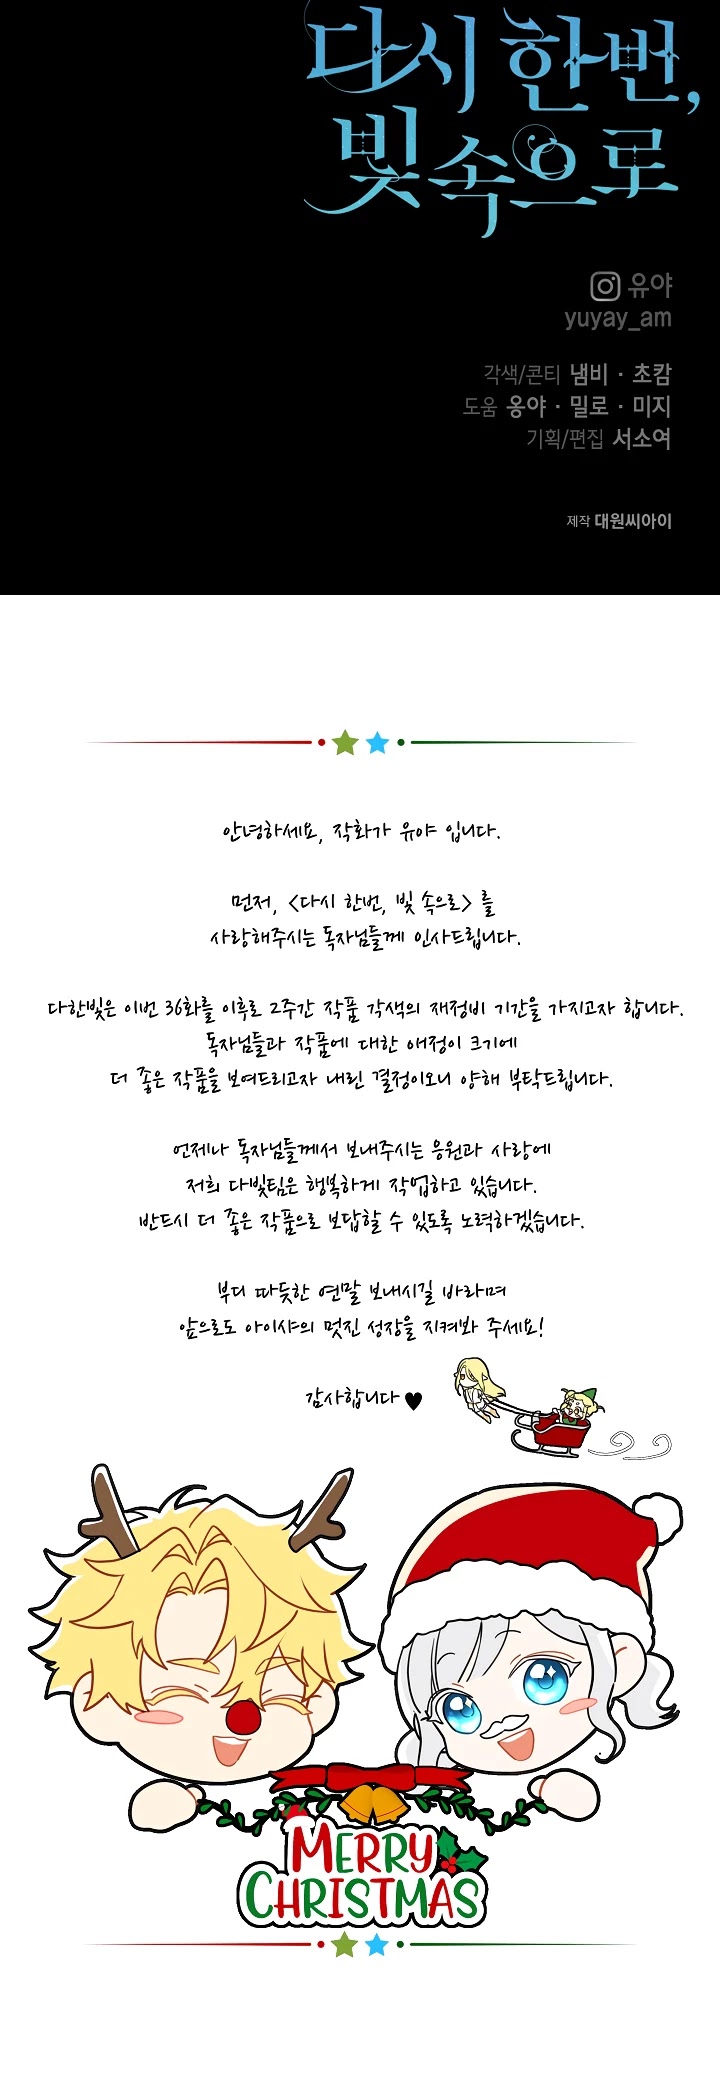 다시 한번,
빛 속으로
유야
yuyay_am
각색/콘티 냄비 · 초캄
도움 옹야 · 밀로 · 미지
기획/편집 서소여
제작 대원씨아이
안녕하세요, 작화가 유야 입니다.
먼저, <다시 한번, 빛 속으로> 를
사랑해주시는 독자님들께 인사드립니다.
다한빛은 이번 36화를 이후로 2주간 작품 각색의 재정비 기간을 가지고자 합니다.
독자님들과 작품에 대한 애정이 크기에
더 좋은 작품을 보여드리고자 내린 결정이오니 양해 부탁드립니다.
언제나 독자님들께서 보내주시는 응원과 사랑에
저희 다빛팀은 행복하게 작업하고 있습니다.
반드시 더 좋은 작품으로 보답할 수 있도록 노력하겠습니다.
부디 따듯한 연말 보내시길 바라며
앞으로도 아이샤의 멋진 성장을 지켜봐 주세요!
감사합니다♥
MERRY
CHRISTMAS